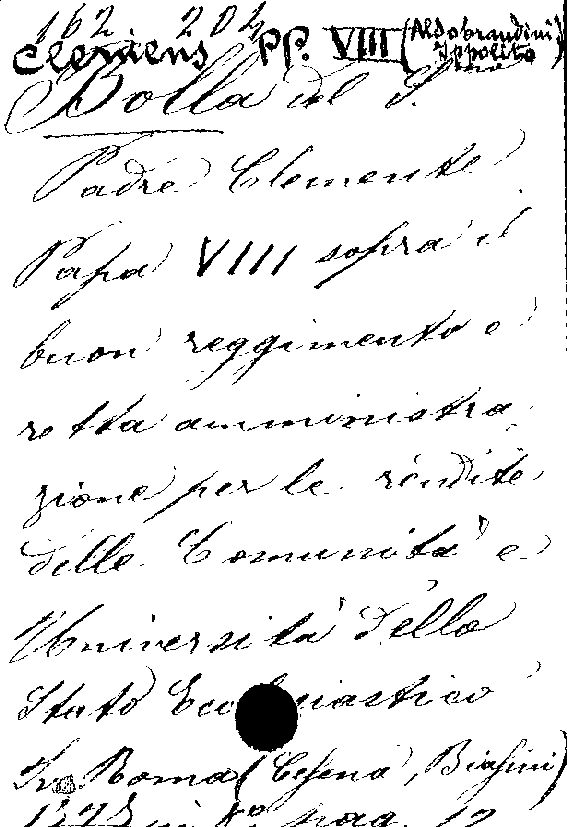 162 204
Clemens PP. VIII (Aldobrandini
Ippolito)
Bolla del S.mo
Padre Clemente
Papa VIII sopra il
buon reggimento e
retta amministra
zione per le rendite
delle Comunità e
Università dello
Stato Eco iastico
Roma (Cesena, Biasini)
in 8° pag. 12